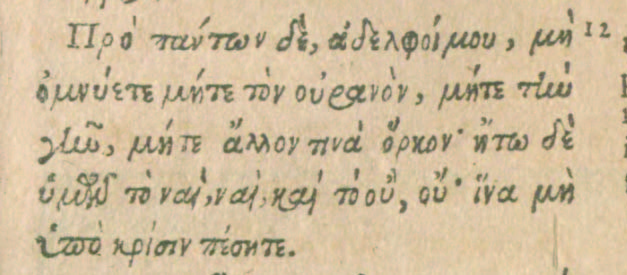 Πρὸ πάντων δὲ, ἀδελφοί μου, μὴ 12
ὀμνύετε μήτε τὸν οὐρανὸν, μήτε τὴν
γῆν, μήτε ἄλλον τινὰ ὅρκον· ἤτω δὲ
ὑμῶν τὸ ναὶ, ναὶ, καὶ τὸ οὒ, οὔ· ἵνα μὴ
ὑπὸ κρίσιν πέσητε.